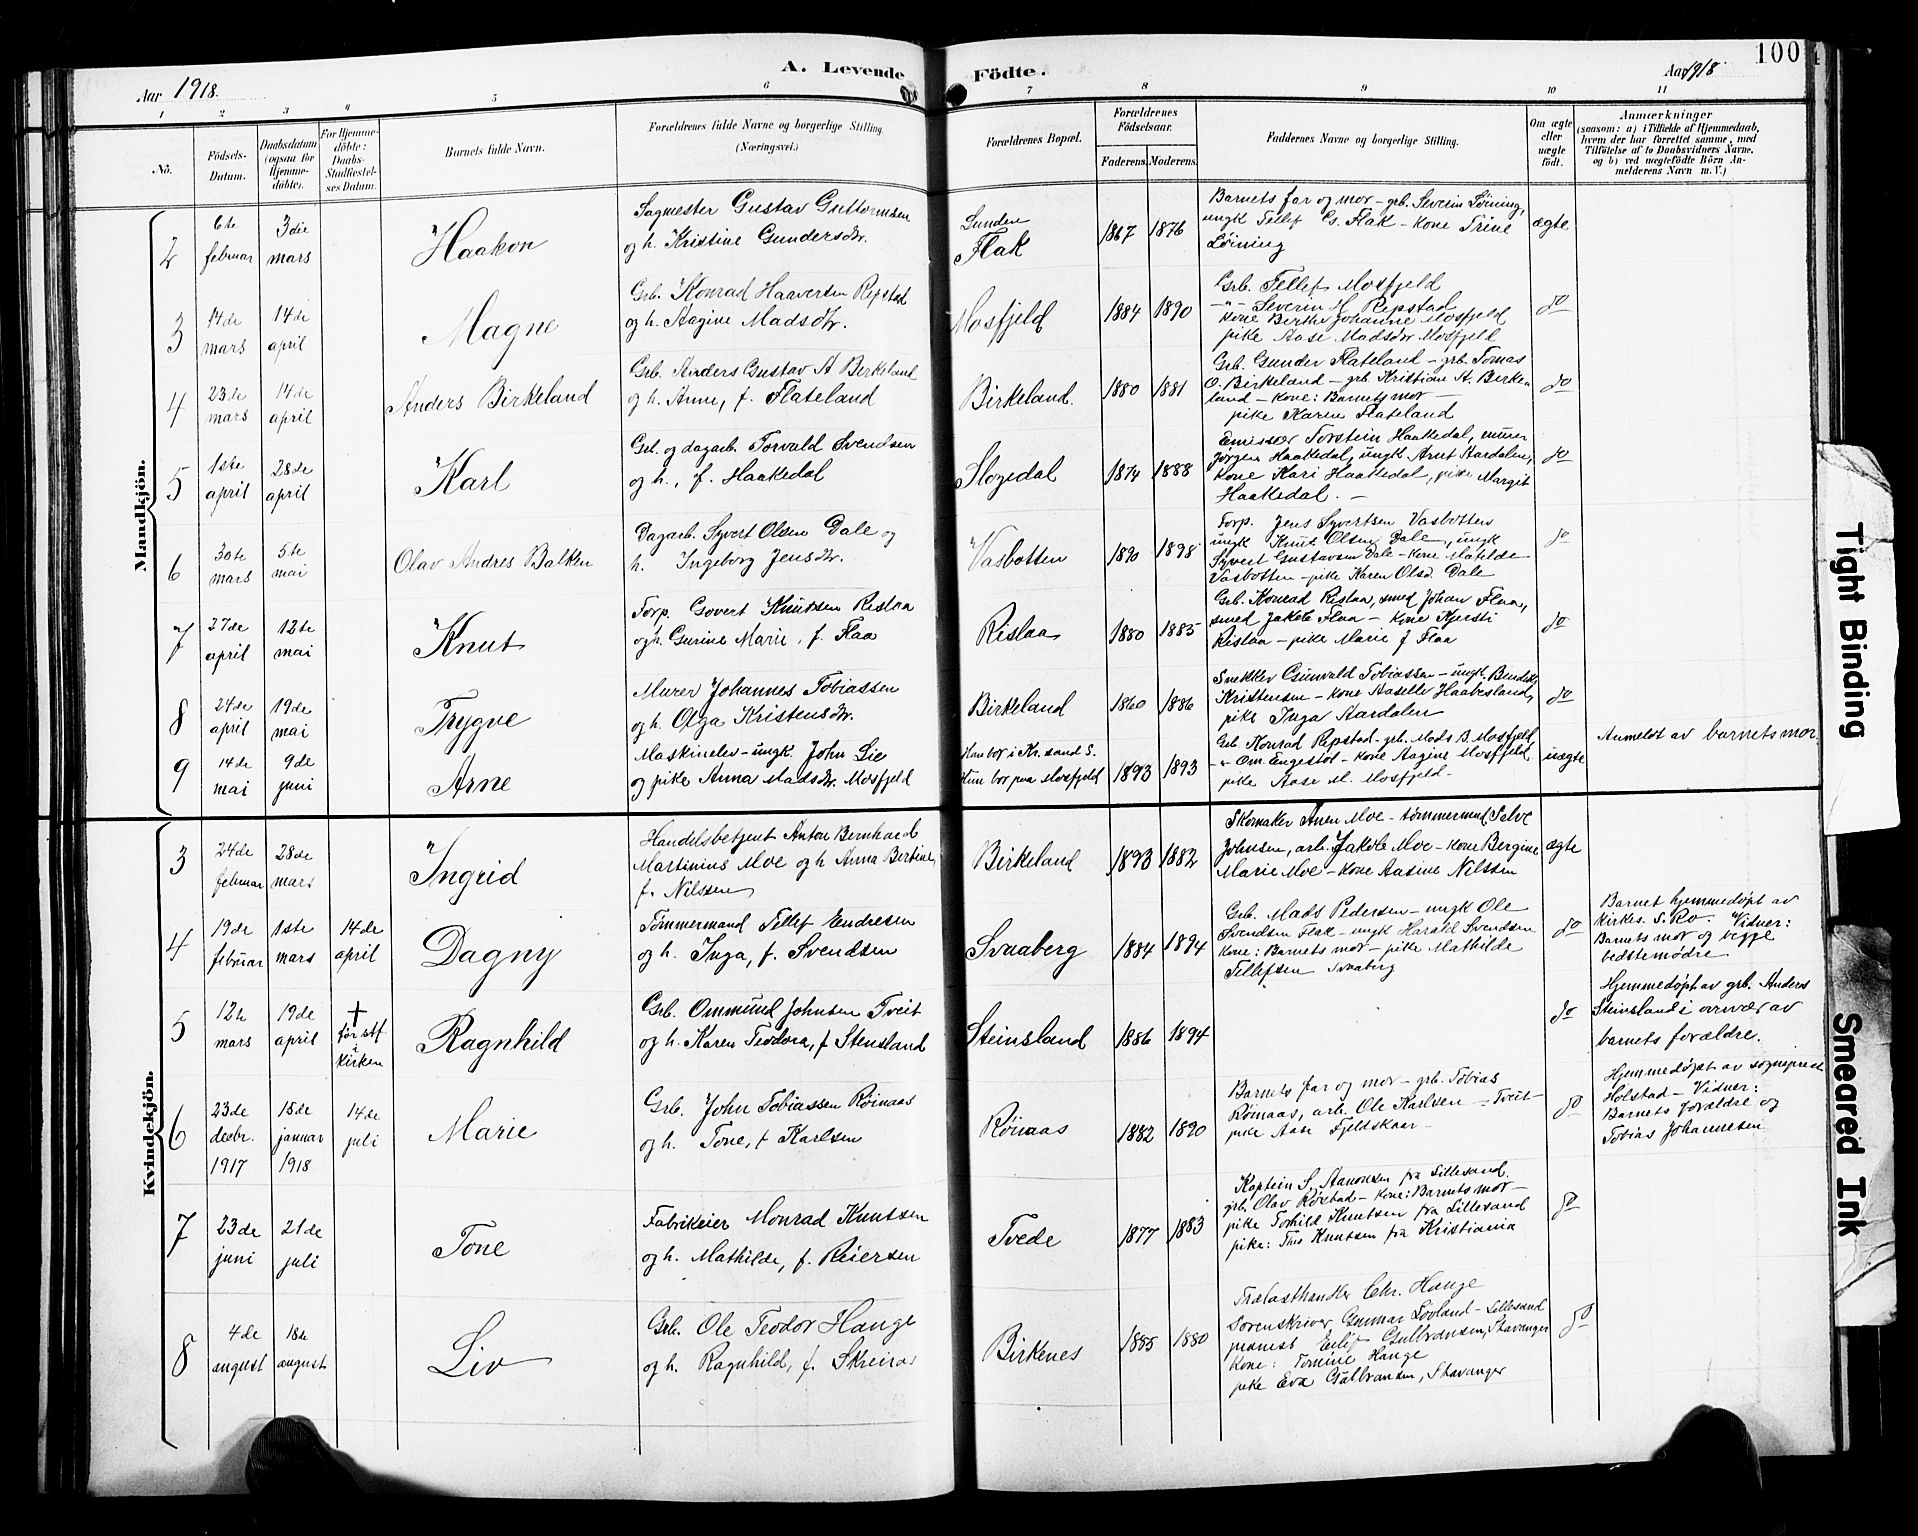 Aar 1918.
A. Levende Födte.
Aar 1918.
100
1 2 3 4 5 6 7 8 9 10 11
No.
Födsels-Datum.
Daabsdatum (ogsaa for Hjemme-döbte).
For Hjemme-döbte: Daabs-Stadfæstel-ses Datum.
Barnets fulde Navn.
Forældrenes fulde Navne og borgerlige Stilling. (Næringsvei.)
Forældrenes Bopæl.
Forældrenes Födselsaar.
Faderens. Moderens.
Faddernes Navne og borgerlige Stilling.
Om ægte eller uægte födt.
Anmærkninger
(saasom: a) i Tilfælde af Hjemmedaab, hvem der har forrettet samme, med Tilföielse af to Daabsvidners Navne, og b) ved uægtefödte Börn An-melderens Navn m. V.)
Mandkjön.
2
6te februar
3die mars
Haakon
Sagmester Gustav Guttormsen
og h. Kristine Gundersdtr.
Sunden
Flak
1867 1876
Barnets far og mor – grb. Severin Løining,
ungk Tellef G. Flak – kone Trine
Løining
ægte
3
14de mars
14de april
Magne
Grb. Konrad Haaversen Repstad
og h. Aagine Madsdtr.
Mosfjeld
1884 1890
Grb. Tellef Mosfjeld
–"– Severin H Repstad
kone Birthe Johanne Mosfjeld
pike Aase Madsdtr Mosfjeld
do
4
23de mars
14de april
Anders Birkeland
Grb. Anders Gustav A Birkeland
og h. Anne, f. Flateland
Birkeland.
1880 1881
Grb. Gunder Flateland – grb. Tomas
O. Birkeland – grb. Kristian A. Birke-
land – kone: Barnets mor –
pike Karen Flateland
do
5
1ste april
28de april
Karl
Grb. og dagarb. Torvald Svendsen
og h., f. Haakedal
Slogedal
1874 1888
Emissær Torstein Haakedal, murer
Jørgen Haakedal, ungk Arnt Aardalen,
kone Kari Haakedal, pike Margit
Haakedal. –
do
6
30te mars
5te mai
Olav Andres Balken
Dagarb. Syvert Olsen Dale og
h. Ingeborg Jensdtr.
Vasbotten
1890 1898
Forp. Jens Syvertsen Vasbotten
ungk Knut Olsen Dale, ungk
Syvert Gustavsen Dale – kone Matilde
Vasbotten – pike Karen Olsd. Dale
do
7
27de april
12te mai
Knut
Forp. Govert Knutsen Rislaa
og h. Gurine Marie, f. Flaa
Rislaa
1880 1885
Grb. Konrad Rislaa, smed Johan Flaa,
smed Jakob Flaa – kone Kjersti
Rislaa – pike Marie J Flaa
do
8
24de april
19de mai
Trygve
Murer Johannes Tobiassen
og h. Olga Kristensdtr.
Birkeland
1860 1886
Snekker Gunvald Tobiassen – ungk. Bendik
Kristensen – kone Aaselle Haabesland,
pike Inga Aardalen
do
9
14de mai
9de juni
Arne
Maskinelev – ungk. John Lie
og pike Anna Madsdtr. Mosfjeld
Han bor i Kr.sand S.
Hun bor paa Mosfjeld
1893 1893
Grb. Konrad Repstad – grb. Mads B. Mosfjeld,
–"– Om. Engestøl – kone Aagine Mosfjeld,
pike Aase M. Mosfjeld –
uægte
Anmeldt av barnets mor.
Kvindekjön.
3
24de februar
28de mars
Ingrid
Handelsbetjent Anton Bernhard
Martinius Moe og h Anna Bertine,
f. Nilssen
Birkeland
1893 1882
Skomaker Anen Moe – tømmermand Selve
Johnsen, arb. Jakob Moe – kone Bergine
Marie Moe – kone Aasine Nilssen
ægte
4
19de februar
1ste mars
14de april
Dagny
Tømmermand Tellef Endresen
og h. Inga, f. Svendsen
Svaaberg
1884 1894
Grb. Mads Pedersen – ungk Ole
Svendsen Flak – ungk Harald Svendsen
kone: Barnets mor – pike Mathilde
Tellefsen Svaaberg
do
Barnet hjemmedøpt av
kirkes. S. Ro. Vidner:
Barnets mor og begge
bedstemødre.
5
12te mars
19de april
† før stf i kirken
Ragnhild
Grb. Ommund Johnsen Tveit
og h. Karen Teodora, f Stensland
Steinsland
1886 1894
do
Hjemmedøpt av grb. Anders
Steinsland i overvær av
barnets forældre.
6
23de decbr. 1917
15de januar 1918
14de juli
Marie
Grb. John Tobiassen Røinaas
og h. Tone, f Karlsen
Røinaas
1882 1890
Barnets far og mor – grb. Tobias
Røinaas, arb. Ole Karlsen – Tveit –
pike Aase Fjeldskaar –
do
Hjemmedøpt av sogneprest
Holstad – Vidner:
Barnets forældre og
Tobias Johannesen
7
23de juni
21de juli
Tone
Fabrikeier Monrad Knutsen
og h. Mathilde, f. Reiersen
Tvede
1877 1883
Kaptein S. Aanonsen fra Lillesand.
grb. Olav Røistad – kone: Barnets mor –
pike Torhild Knutsen fra Lillesand
pike: Thea Knutsen fra Kristiania
do
8
4de august
18te august
Liv
Grb. Ole Teodor Hange
og h. Ragnhild, f. Skreiros
Birkenes
1885 1880
Trælasthandler Chr. Hange
Sorenskriver Gunnar Lovland – Lillesand
pianist Eilef Gulbransen, Stavanger
kone: Tomine Hange
pike Eva Gulbransen, Stavanger
do
Tight Binding
Smeared Ink